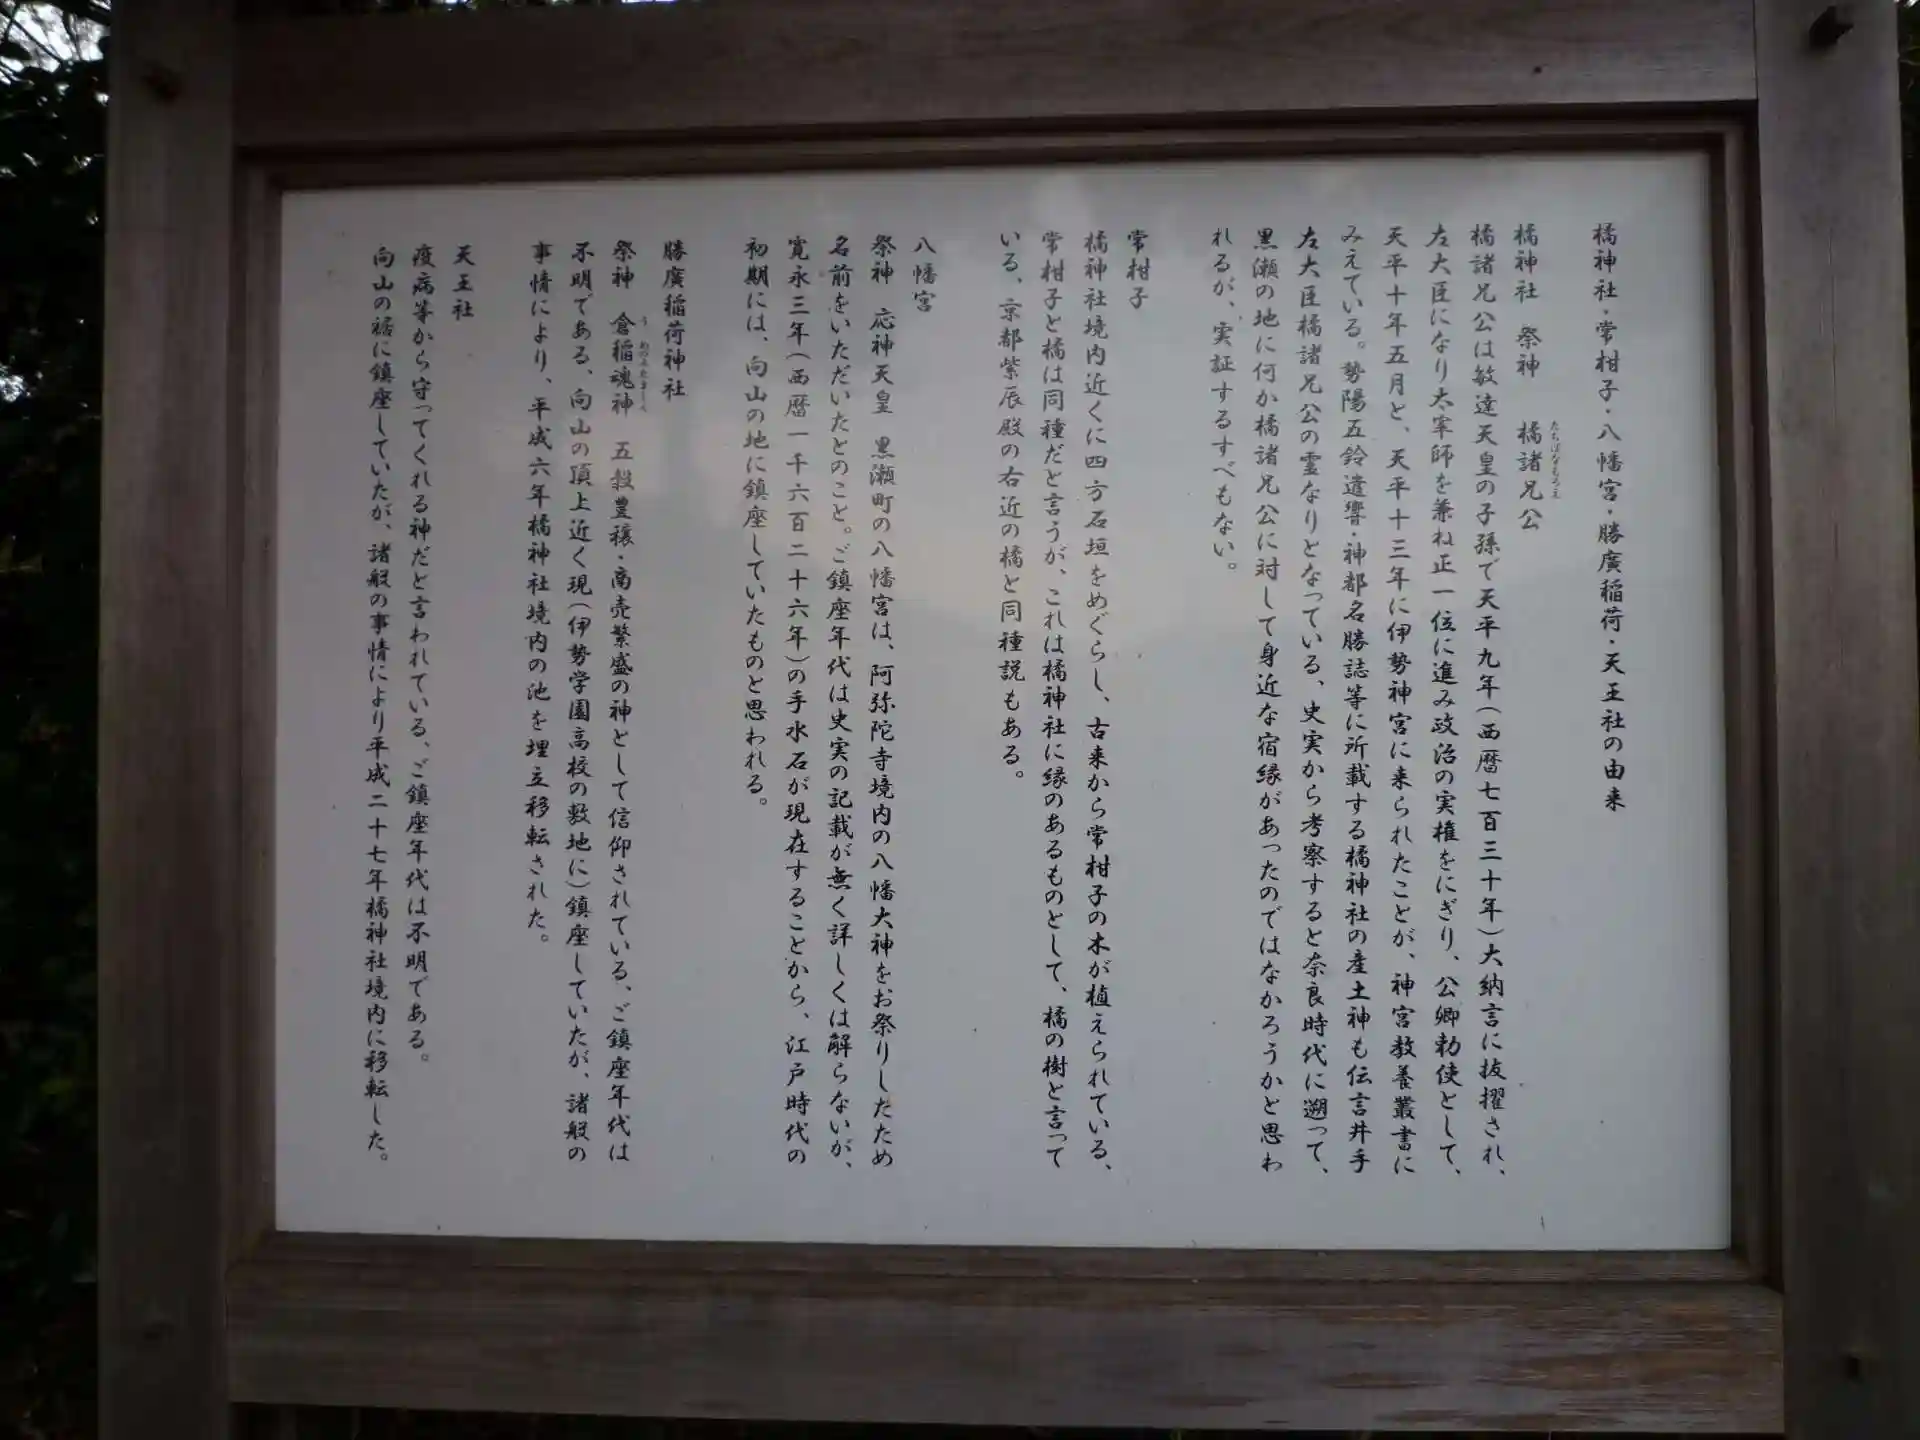 橘神社・常柑子・八幡宮・勝廣稲荷・天王社の由来
橘神社　祭神　橘諸兄公
橘諸兄公は敏達天皇の子孫で天平九年（西暦七百三十年）大納言に抜擢され、
左大臣になり太宰師を兼ね正一位に進み政治の実権をにぎり、公卿勅使として、
天平十年五月と、天平十三年に伊勢神宮に来られたことが、神宮教養叢書に
みえている。勢陽五鈴遺響・神都名勝誌等に所載する橘神社の産土神も伝言井手
左大臣橘諸兄公の霊なりとなっている、史実から考察すると奈良時代に遡って、
黒瀬の地に何か橘諸兄公に対して身近な宿縁があったのではなかろうかと思わ
れるが、実証するすべもない。
常柑子
橘神社境内近くに四方石垣をめぐらし、古来から常柑子の木が植えられている、
常柑子と橘は同種だと言うが、これは橘神社に縁のあるものとして、橘の樹と言って
いる、京都紫辰殿の右近の橘と同種説もある。
八幡宮
祭神　応神天皇　黒瀬町の八幡宮は、阿弥陀寺境内の八幡大神をお祭りしたため
名前をいただいたとのこと。ご鎮座年代は史実の記載が無く詳しくは解らないが、
寛永三年（西暦一千六百二十六年）の手水石が現在することから、江戸時代の
初期には、向山の地に鎮座していたものと思われる。
勝廣稲荷神社
祭神　倉稲魂神　五穀豊穣・商売繁盛の神として信仰されている、ご鎮座年代は
不明である、向山の頂上近く現（伊勢学園高校の敷地に）鎮座していたが、諸般の
事情により、平成六年橘神社境内の池を埋立移転された。
天王社
疫病等から守ってくれる神だと言われている、ご鎮座年代は不明である。
向山の裾に鎮座していたが、諸般の事情により平成二十七年橘神社境内に移転した。